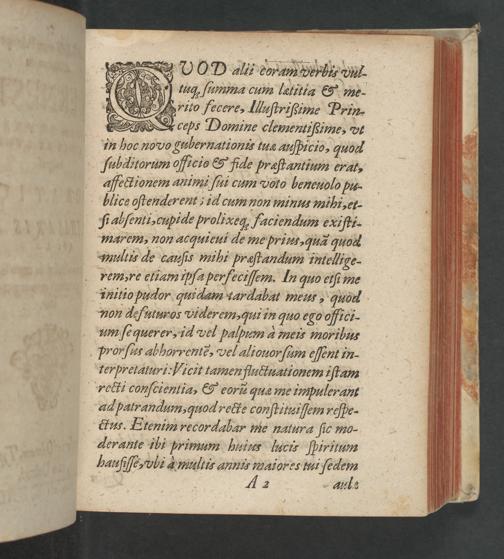 QVOD alii coram verbis vul-
tuq́; summa cum lætitia & me-
rito fecere, Illustrißime Prin-
ceps Domine clementißime, vt
in hoc novo gubernationis tuæ auspicio, quod
subditorum officio & fide præstantium erat,
affectionem animi sui cum voto benevolo pu-
blice ostenderent; id cum non minus mihi, et-
si absenti, cupide prolixeq́; faciendum existi-
marem, non acquievi de me prius, quã quod
multis de causis mihi præstandum intellige-
rem, re etiam ipsa perfecissem. In quo etsi me
initio pudor quidam tardabat meus, quod
non defuturos viderem, qui in quo ego offici-
um sequerer, id vel palpum à meis moribus
prorsus abhorrentẽ, vel aliovorsum essent in-
terpretaturi: Vicit tamen fluctuationem istam
recti conscientia, & eorũ quæ me impulerant
ad patrandum, quod recte constituissem respe-
ctus. Etenim recordabar me natura sic mo-
derante ibi primum huius lucis spiritum
hausisse, vbi à multis annis maiores tui sedem
A 2 aulæ